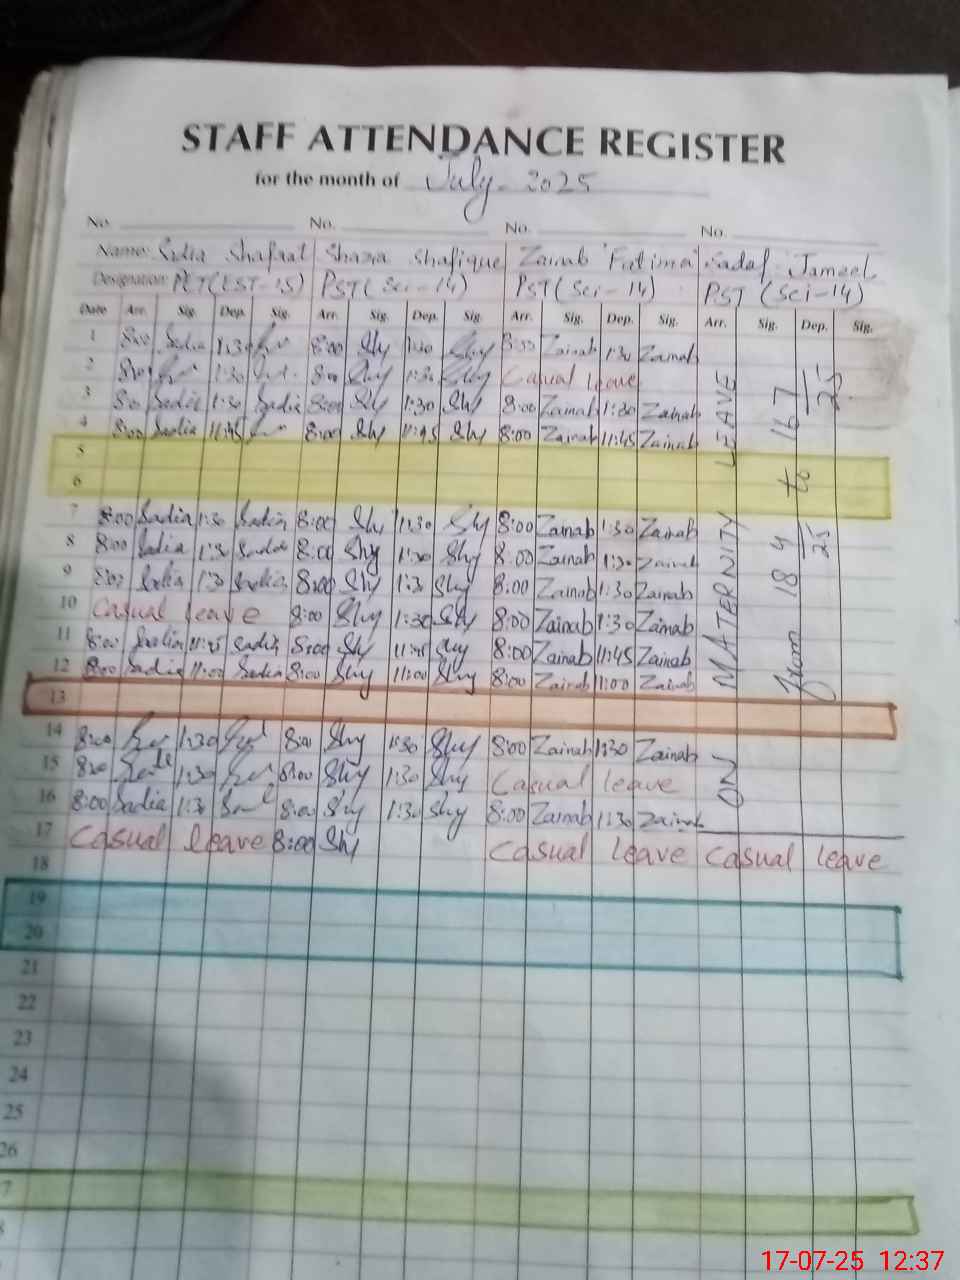 STAFF ATTENDANCE REGISTER
for the month of July-2025
No. No. No. No.
Name: Sadia Shafaat Shazia Shafique Zainab Fatima Sadaf Jameel
Designation: PST (Sci-14) PST (Sci-14) PST (Sci-14)
Date Arr. Sig. Dep. Sig. Arr. Sig. Dep. Sig. Arr. Sig. Dep. Sig. Arr. Sig. Dep. Sig.
1 8:00 Sadia 1:30 8:00 Shy 1:30 Shy 8:00 Zainab 1:30 Zainab
2 8:00 1:30 8:00 Shy 1:30 Shy Casual leave
3 8:00 Sadia 1:30 Sadia 8:00 Shy 1:30 Shy 8:00 Zainab 1:30 Zainab
4 8:00 Sadia 11:45 8:00 Shy 11:45 Shy 8:00 Zainab 11:45 Zainab
5
6
7 8:00 Sadia 1:30 Sadia 8:00 Shy 1:30 Shy 8:00 Zainab 1:30 Zainab
8 8:00 Sadia 1:30 Sadia 8:00 Shy 1:30 Shy 8:00 Zainab 1:30 Zainab
9 8:00 Sadia 1:30 Sadia 8:00 Shy 1:30 Shy 8:00 Zainab 1:30 Zainab
10 Casual leave 8:00 Shy 1:30 Shy 8:00 Zainab 1:30 Zainab
11 8:00 Sadia 11:45 Sadia 8:00 Shy 11:45 Shy 8:00 Zainab 11:45 Zainab
12 8:00 Sadia 11:00 Sadia 8:00 Shy 11:00 Shy 8:00 Zainab 11:00 Zainab
13
14 8:00 1:30 8:00 Shy 1:30 Shy 8:00 Zainab 1:30 Zainab
15 8:00 1:30 8:00 Shy 1:30 Shy Casual leave
16 8:00 Sadia 1:30 8:00 Shy 1:30 Shy 8:00 Zainab 1:30 Zainab
ON MATERNITY LEAVE
From 18 4/25 to 16 7/25
17 Casual leave 8:00 Shy Casual leave Casual leave
18
19
20
21
22
23
24
25
26
7
8
17-07-25 12:37